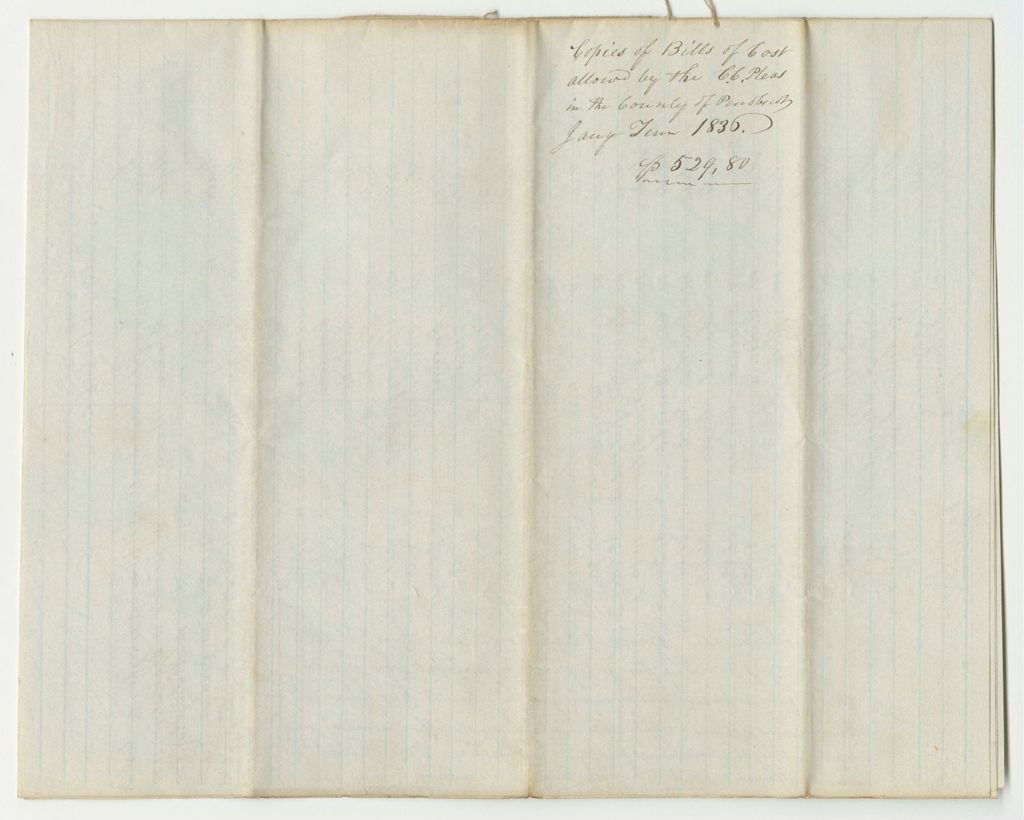 Copies of Bills of Cost
allowed by the CC. Pleas
in the County of Penobscot
Jany Term 1836.
$ 529,80